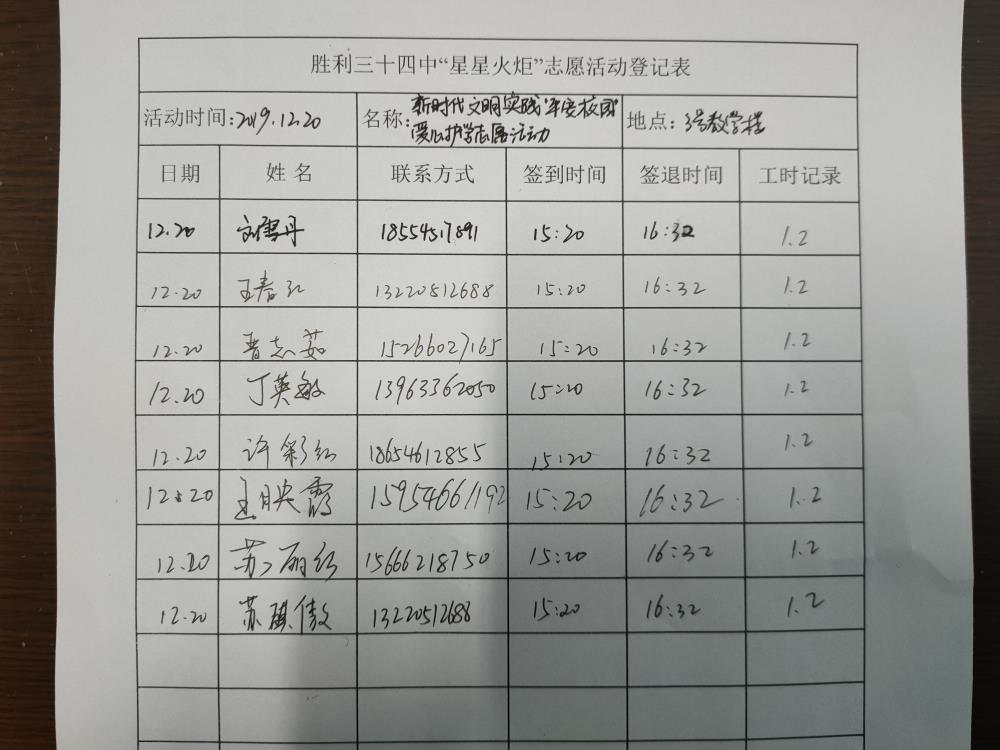 胜利三十四中“星星火炬”志愿活动登记表
活动时间:2019.12.20 名称:新时代文明实践"平安校园" 爱心护学志愿活动 地点:3号教学楼
日期 姓名 联系方式 签到时间 签退时间 工时记录
12.20 刘雪丹 18554517891 15:20 16:32 1.2
12.20 王春红 13220512688 15:20 16:32 1.2
12.20 曹志茹 15266027165 15:20 16:32 1.2
12.20 丁英敏 13963362050 15:20 16:32 1.2
12.20 许彩红 18654612855 15:20 16:32 1.2
12.20 王映霞 15954661192 15:20 16:32 1.2
12.20 苏丽红 15666218750 15:20 16:32 1.2
12.20 苏麒傲 13220512688 15:20 16:32 1.2